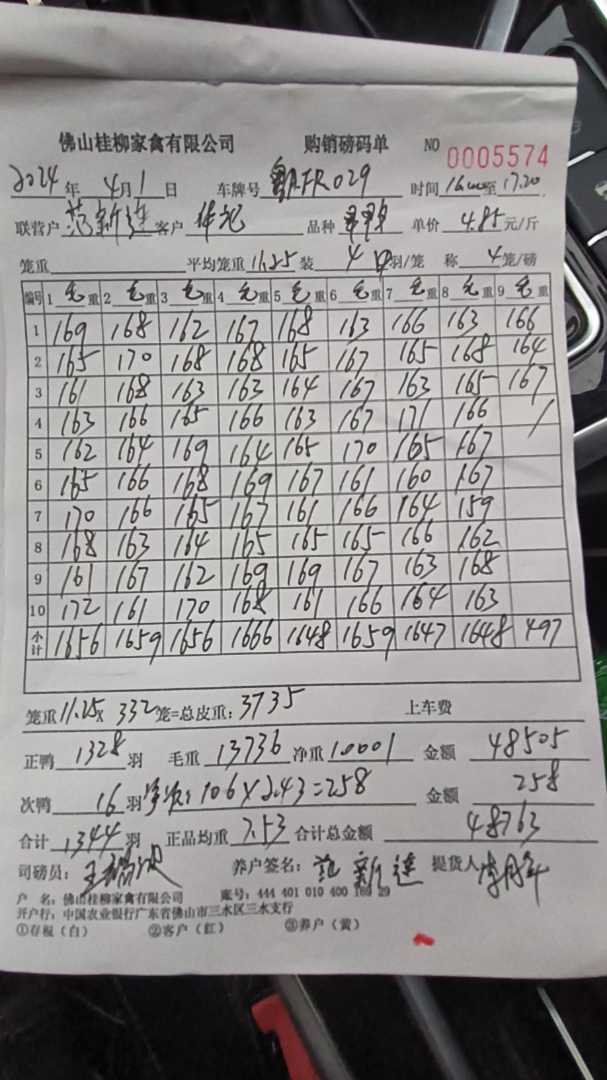 佛山桂柳家禽有限公司 购销磅码单 NO 0005574
2024年 4月1日 车牌号 粤AFR029 时间 16:00至17.20
联营户 范新连 客户 品种 单价 4.85元/斤
笼重 平均笼重 11.25 装 4 羽/笼 称 4 笼/磅
编号 1 毛重 2 毛重 3 毛重 4 毛重 5 毛重 6 毛重 7 毛重 8 毛重 9 毛重
1 169 168 162 167 168 163 166 163 166
2 165 170 168 168 165 167 165 168 164
3 161 168 163 163 164 167 163 165 167
4 163 166 165 166 163 167 171 166 /
5 162 164 169 164 165 170 165 167
6 165 166 168 169 167 161 160 167
7 170 166 165 167 161 166 164 159
8 168 163 164 165 165 165 166 162
9 161 167 162 169 169 167 163 168
10 172 161 170 168 161 166 164 163
小计 1656 1659 1656 1666 1648 1659 1647 1648 497
笼重 11.25 x 332 笼=总皮重: 3735 上车费
正鸭 1328 羽 毛重 13736 净重 10001 金额 48505
次鸭 16 羽 106 X 2.43 = 258 金额 258
合计 1344 羽 正品均重 7.53 合计总金额 48763
司磅员: 养户签名: 范新连 提货人
户 名: 佛山桂柳家禽有限公司 账号: 444 401 010 400 169 29
开户行: 中国农业银行广东省佛山市三水区三水支行
①存根(白) ②客户(红) ③养户(黄)